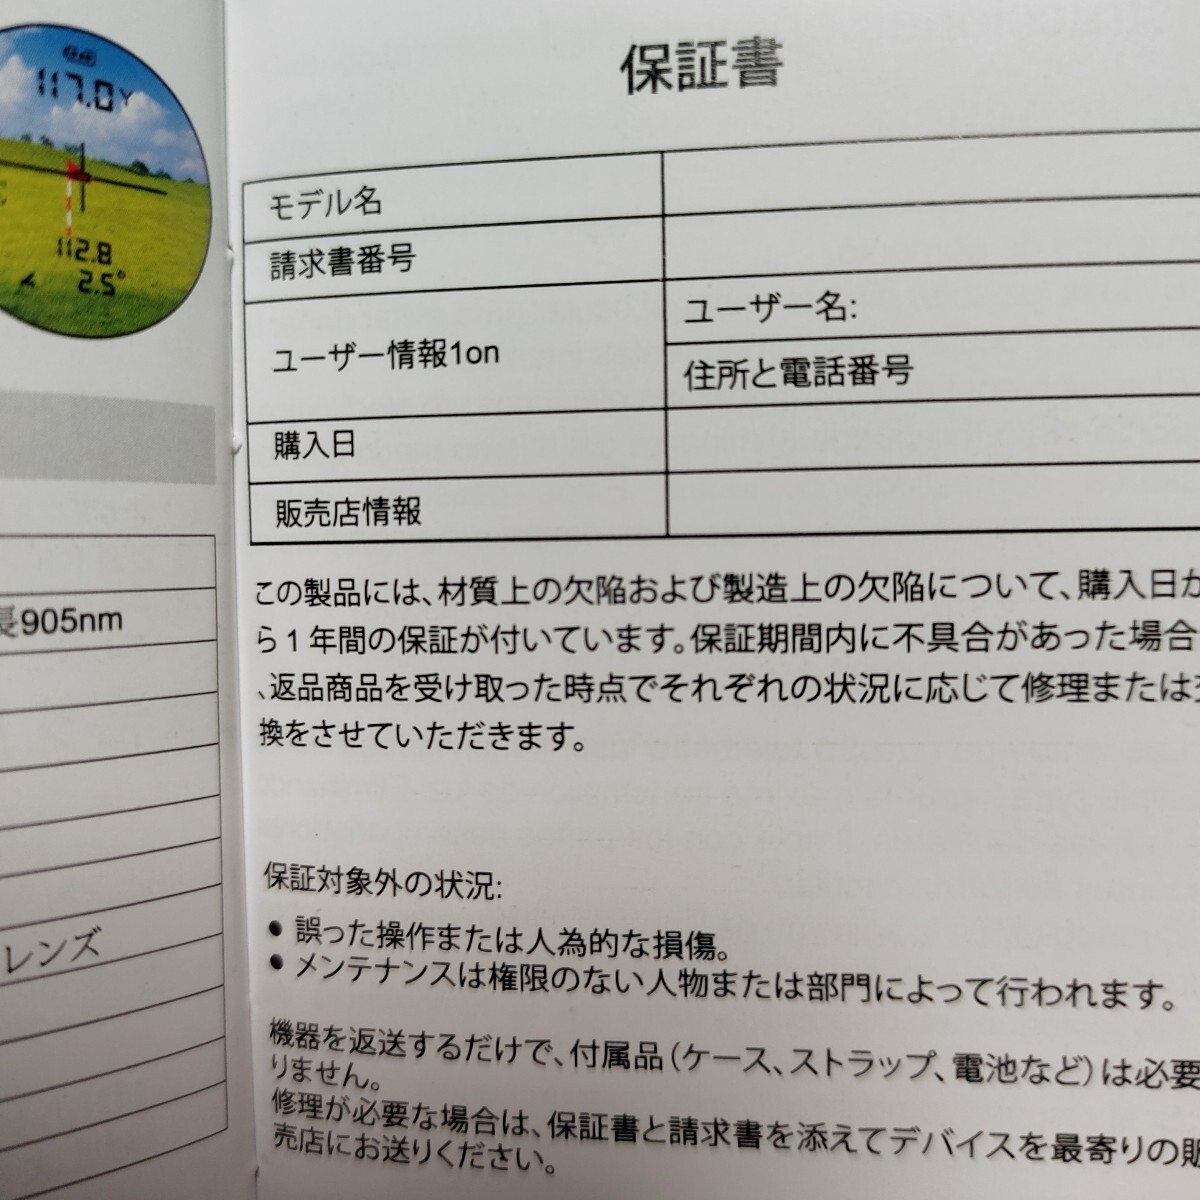 117.0Y
112.8
2.5°
長905nm
レンズ
保証書
モデル名
請求書番号
ユーザー情報1on
ユーザー名:
住所と電話番号
購入日
販売店情報
この製品には、材質上の欠陥および製造上の欠陥について、購入日か
ら1年間の保証が付いています。保証期間内に不具合があった場合
、返品商品を受け取った時点でそれぞれの状況に応じて修理または交
換をさせていただきます。
保証対象外の状況:
● 誤った操作または人為的な損傷。
● メンテナンスは権限のない人物または部門によって行われます。
機器を返送するだけで、付属品(ケース、ストラップ、電池など)は必要
りません。
修理が必要な場合は、保証書と請求書を添えてデバイスを最寄りの販
売店にお送りください。